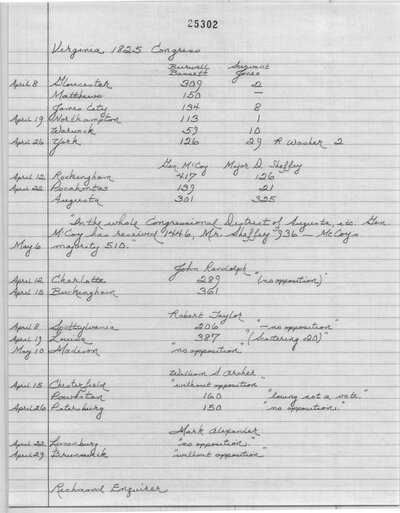 25302
Virginia 1825 Congress
Burwell Servant
Bassett Jones
April 8 Gloucester 309 2
Matthews 150 —
James City 134 8
April 19 Northampton 113 1
Warwick 59 10
April 26 York 126 29 R Washer 2
Geo. McCoy Major D. Sheffey
April 12 Rockingham 417 126
April 22 Pocahontas 139 21
Augusta 301 325
"In the whole Congressional District of Augusta, etc. Gen.
McCoy has received 1446, Mr. Sheffey 936 — McCoy's
May 6 majority 510."
John Randolph
April 12 Charlotte 289 "(no opposition)"
April 15 Buckingham 361
Robert Taylor
April 8 Spottsylvania 206 "— no opposition"
April 19 Louisa 387 "(Scattering 20)"
May 10 Madison "no opposition"
William S Archer
April 15 Chesterfield "without opposition"
Powhatan 160 "losing not a vote."
April 26 Petersburg 150 "no opposition."
Mark Alexander
April 22 Lunenburg "no opposition."
April 29 Brunswick "without opposition"
Richmond Enquirer